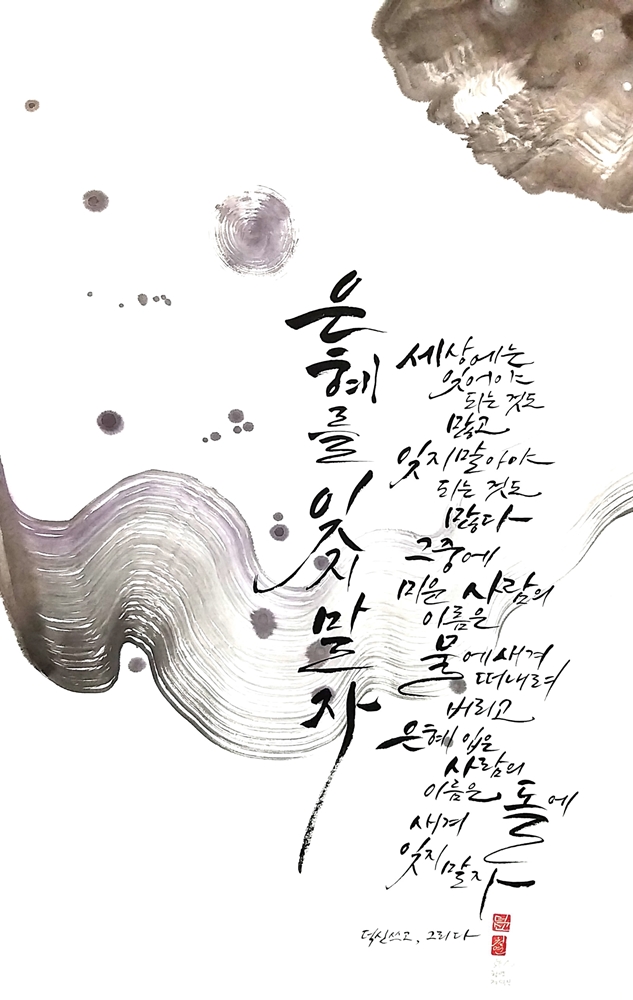 은
혜
를
잊
지
말
자
세상에는
잊어야
되는 것도
많고
잊지말아야
되는 것도
많다
그중에
미운 사람의
이름은
물에새겨
떠내려
버리고
은혜 입은
사람의
이름은 돌에
새겨
잊지
말자
덕신쓰고, 그리다